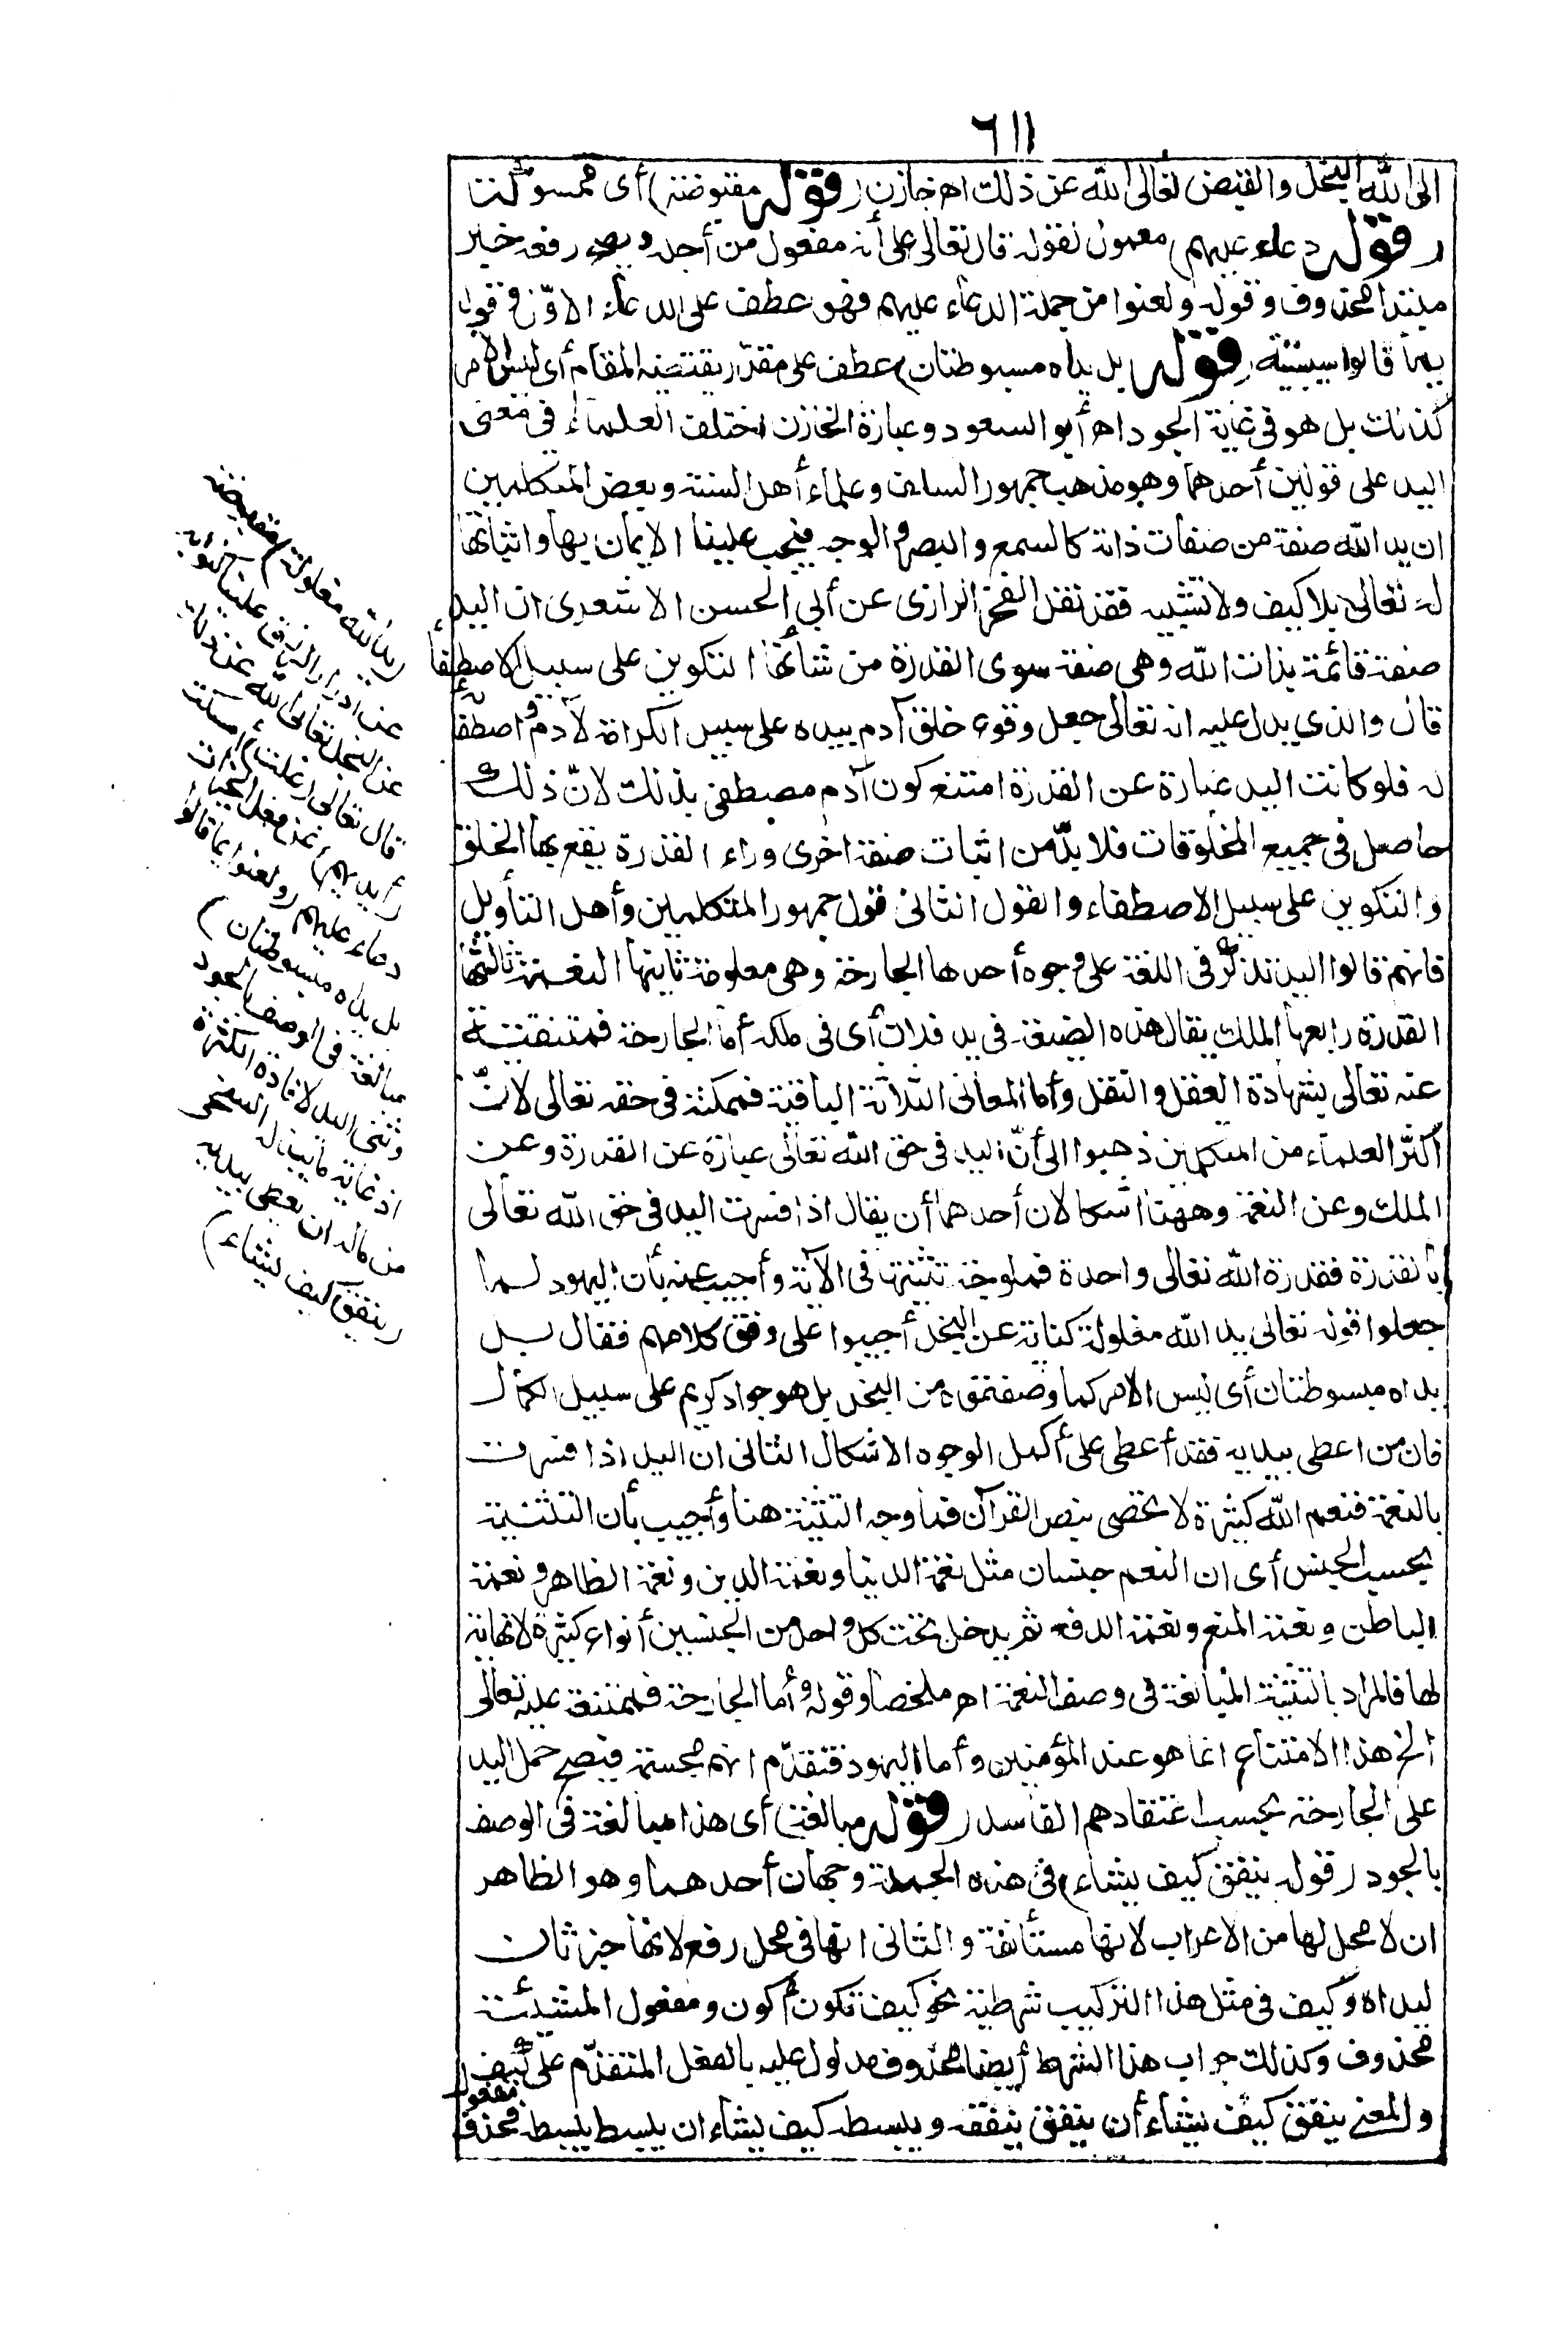 ٦١١
الى الله البخل والقبض تعالى الله عن ذلك اه خازن (قوله مقبوضة) أى ممسوكة
(قوله دعاء عليهم) معمول لقوله قال تعالى على أنه مفعول من أجله ويصح رفعه خبر
مبتدا محذوف وقوله ولعنوا من جملة الدعاء عليهم فهو عطف على الدعاء الاوّل وقوله
بما قالوا سببية (قوله بل يداه مبسوطتان) عطف على مقدّر يقتضيه المقام أى ليس الامر
كذلك بل هو فى غاية الجود اه أبو السعود وعبارة الخازن اختلف العلماء فى معنى
اليد على قولين أحدهما وهو مذهب جمهور السلف وعلماء أهل السنة وبعض المتكلمين
ان يد الله صفة من صفات ذاته كالسمع والبصر والوجه فيجب علينا الايمان بها واثباتها
له تعالى بلا كيف ولا تشبيه فقد نقل الفخر الرازى عن أبى الحسن الاشعرى ان اليد
صفة قائمة بذات الله وهى صفة سوى القدرة من شأنها التكوين على سبيل الاصطفاء
قال والذى يدل عليه انه تعالى جعل وقوع خلق آدم بيده على سبيل الكرامة لآدم واصطفائه
له فلو كانت اليد عبارة عن القدرة امتنع كون آدم مصطفى بذلك لانّ ذلك
حاصل فى جميع المخلوقات فلا بدّ من اثبات صفة اخرى وراء القدرة يقع بها الخلق
والتكوين على سبيل الاصطفاء والقول الثانى قول جمهور المتكلمين وأهل التأويل
فانهم قالوا اليد تذكر فى اللغة على وجوه أحدها الجارحة وهى معلومة ثانيها النعمة ثالثها
القدرة رابعها الملك يقال هذه الضيعة فى يد فلان أى فى ملكه أما الجارحة فمنتفية
عنه تعالى بشهادة العقل والنقل وأما المعانى الثلاثة الباقية فممكنة فى حقه تعالى لانّ
أكثر العلماء من المتكلمين ذهبوا الى أنّ اليد فى حق الله تعالى عبارة عن القدرة وعن
الملك وعن النعمة وههنا اشكالان أحدهما أن يقال اذا فسرت اليد فى حق الله تعالى
بالقدرة فقدرة الله تعالى واحدة فما وجه تثنيتها فى الآية وأجيب عنه بأن اليهود لما
جعلوا قوله تعالى يد الله مغلولة كناية عن البخل أجيبوا على وفق كلامهم فقال بل
يداه مبسوطتان أى ليس الامر كما وصفتموه من البخل بل هو جواد كريم على سبيل الكمال
فان من اعطى بيديه فقد أعطى على أكمل الوجوه الاشكال الثانى ان اليد اذا فسرت
بالنعمة فنعم الله كثيرة لا تحصى بنص القرآن فما وجه التثنية هنا وأجيب بأن التثنية
بحسب الجنس أى ان النعم جنسان مثل نعمة الدنيا ونعمة الدين ونعمة الظاهر ونعمة
الباطن ونعمة المنع ونعمة الدفع ثم يدخل تحت كل واحد من الجنسين أنواع كثيرة لا نهاية
لها فالمراد بالتثنية المبالغة فى وصف النعمة اه ملخصا وقوله وأما الجارحة فممتنعة عليه تعالى
الخ هذا الامتناع انما هو عند المؤمنين وأما اليهود فتقدّم انهم مجسمة فيصح حمل اليد
على الجارحة بحسب اعتقادهم الفاسد (قوله مبالغة) أى هذا مبالغة فى الوصف
بالجود (قوله ينفق كيف يشاء) فى هذه الجملة وجهان أحدهما وهو الظاهر
ان لا محل لها من الاعراب لانها مستأنفة والثانى انها فى محل رفع لانها خبر ثان
ليداه وكيف فى مثل هذا التركيب شرطية نحو كيف تكون أكون ومفعول المشيئة
محذوف وكذلك جواب هذا الشرط أيضا محذوف مدلول عليه بالفعل المتقدّم على كيف
والمعنى ينفق كيف يشاء أن ينفق ينفق ويبسط كيف يشاء ان يبسط يبسط فحذف مفعول
(يد الله مغلولة) مقبوضة
عن ادرار الرزق علينا كنوا به
عن البخل تعالى الله عن ذلك
قال تعالى (غلت) أمسكت
(أيديهم) عن فعل الخيرات
دعاء عليهم (ولعنوا بما قالوا
بل يداه مبسوطتان)
مبالغة فى الوصف بالجود
وثنى اليد لافادة الكثرة
اذ غاية ما يبذله السخى
من ماله ان يعطى بيديه
(ينفق كيف يشاء)